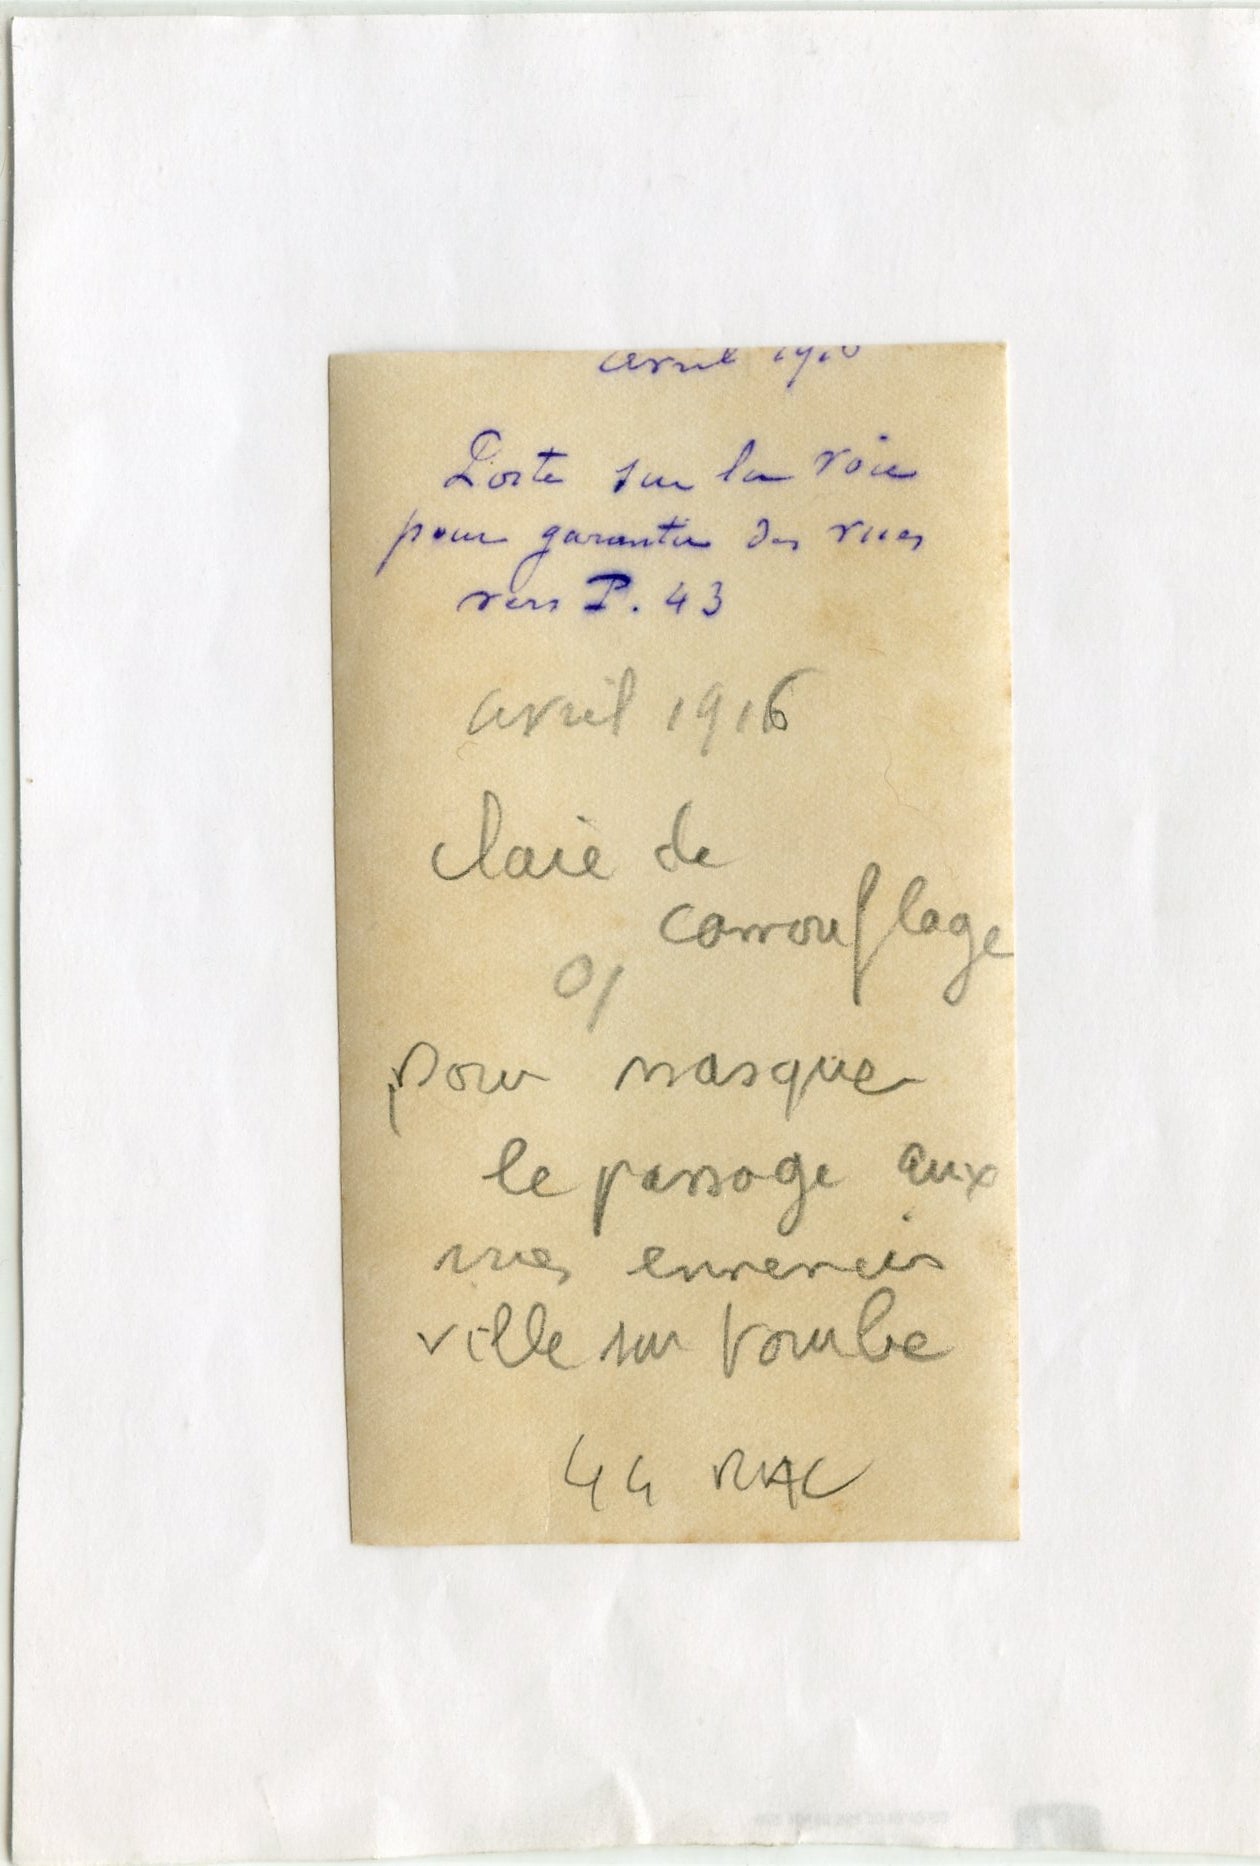 avril 1916
Porte sur la voie
pour garantir des vues
vers P. 43
avril 1916
claie de
camouflage
pour masquer
le passage aux
vues ennemies
ville sur tourbe
44 RAC